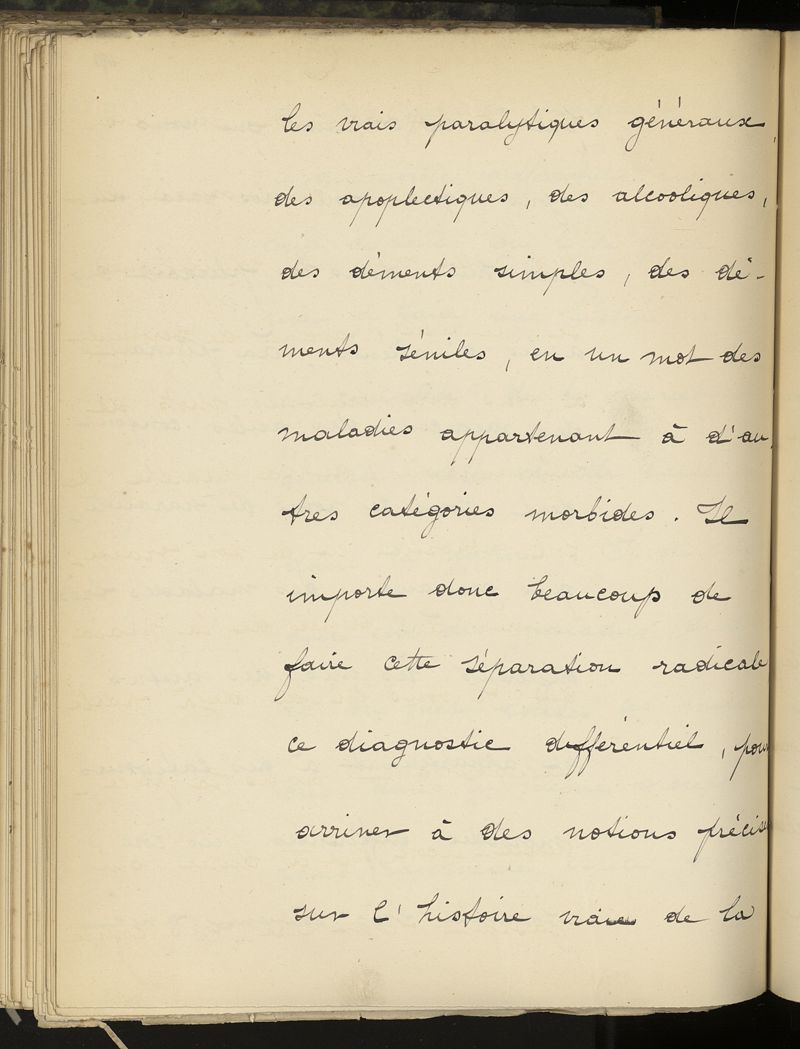 les vrais paralytiques généraux,
des apoplectiques, des alcooliques,
des déments simples, des dé-
ments séniles, en un mot des
maladies appartenant à d'au
tres catégories morbides. Il
importe donc beaucoup de
faire cette séparation radicale
ce diagnostic différentiel, pour
arriver à des notions précises
sur l'histoire vraie de la